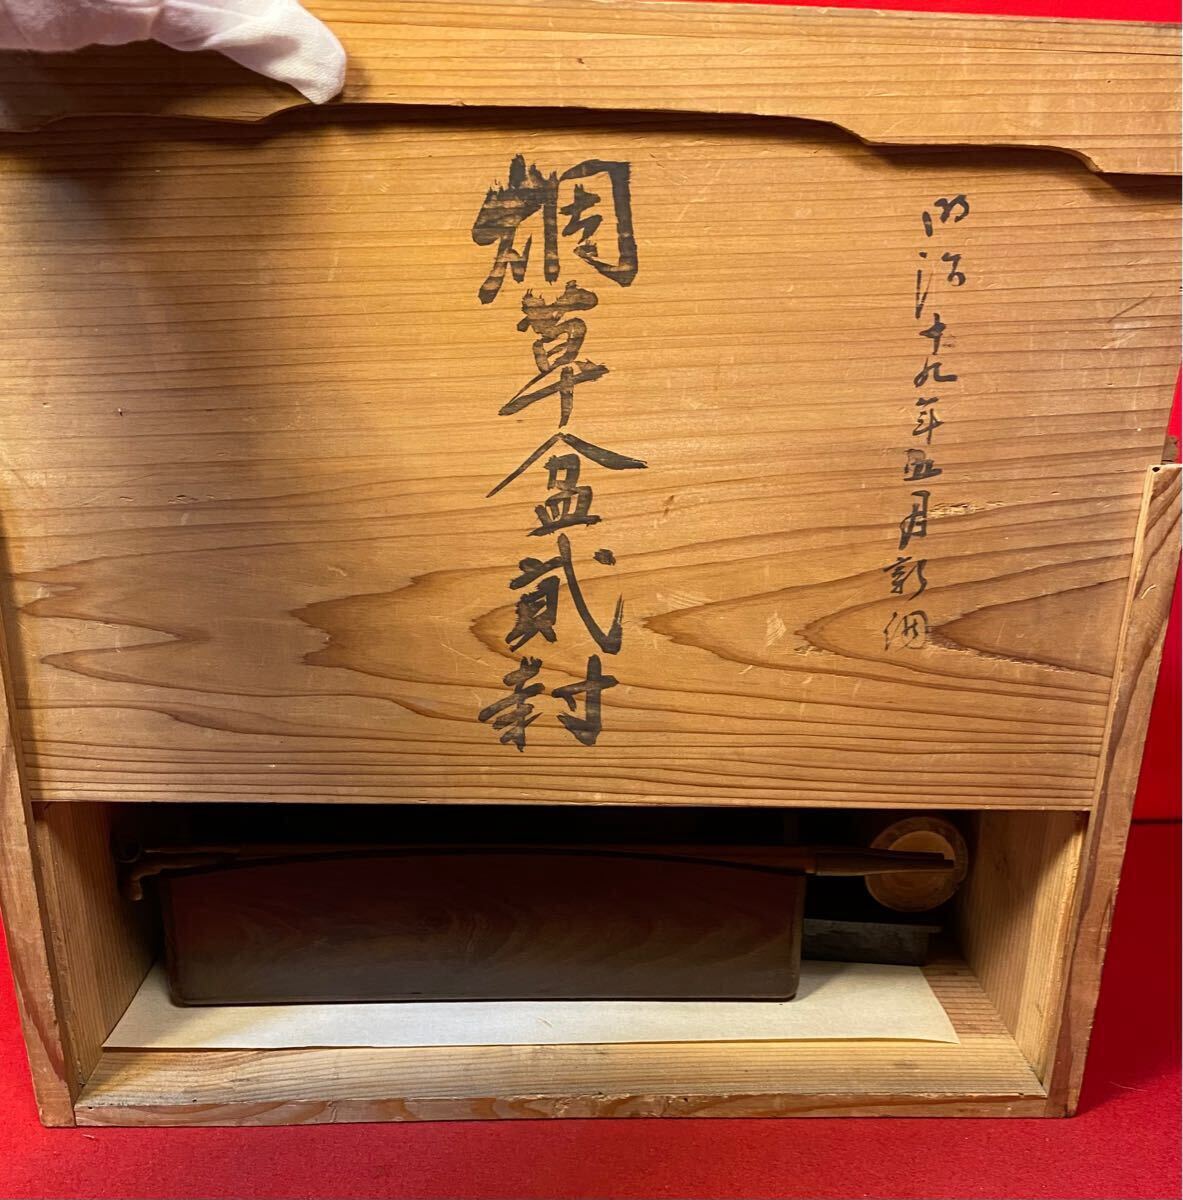 明治十九年五月新調
烟草盆貳封